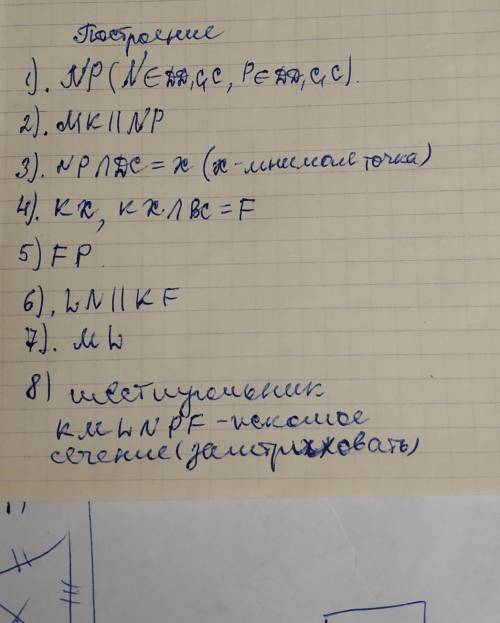 Построение
1). NP (N∈DD₁C₁C, P∈DD₁C₁C).
2). MK || NP
3). NP∩DC = X (X-мнимая точка)
4). KX, KX∩BC = F
5) FP.
6). LN || KF
7). ML
8) шестиугольник
KMLNPF - искомое
сечение (заштриховать)